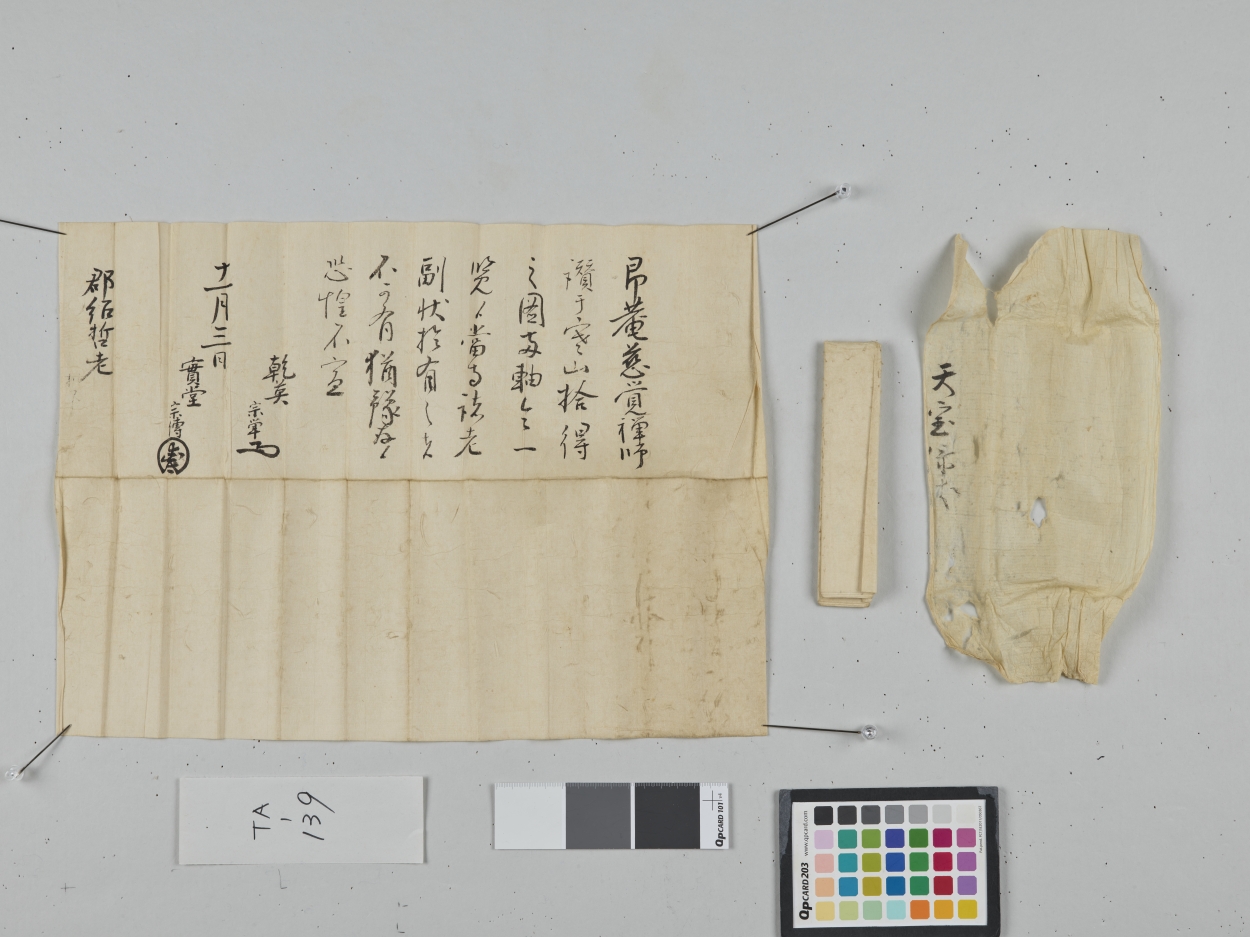 昴菴慈覚禅師
讃于寒山拾得
之図両軸令一
覧候當寺諸老
副状於有之者
不可有猶豫候
恐惶不宣
乾英
宗單
十一月三日
實堂
宗傳
郡紹哲老
天室宗
TA-139
QPCARD 101 v4
QPCARD 203
www.qpcard.com